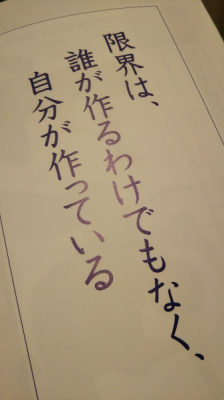 限界は、
誰が作るわけでもなく、
自分が作っている